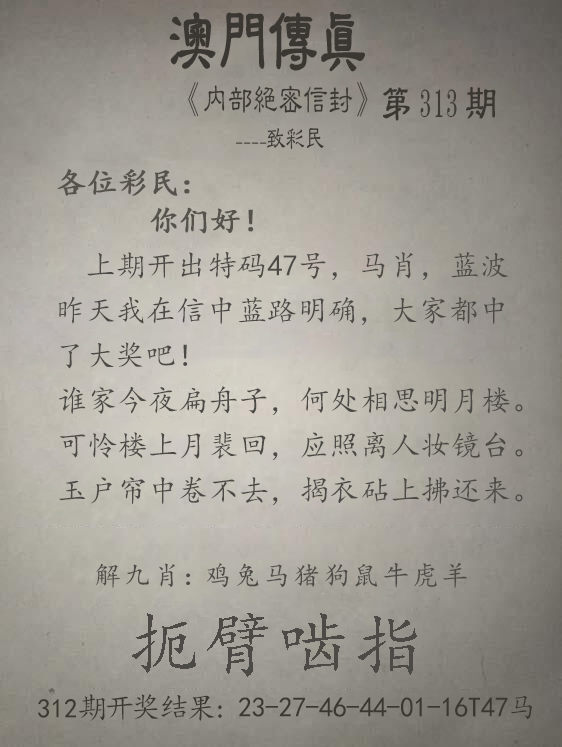 澳門傳眞
《内部絕密信封》第313期
----致彩民
各位彩民：
你们好！
上期开出特码47号，马肖，蓝波
昨天我在信中蓝路明确，大家都中
了大奖吧！
谁家今夜扁舟子，何处相思明月楼。
可怜楼上月裴回，应照离人妆镜台。
玉户帘中卷不去，揭衣砧上拂还来。
解九肖：鸡兔马猪狗鼠牛虎羊
扼臂啮指
312期开奖结果：23-27-46-44-01-16T47马